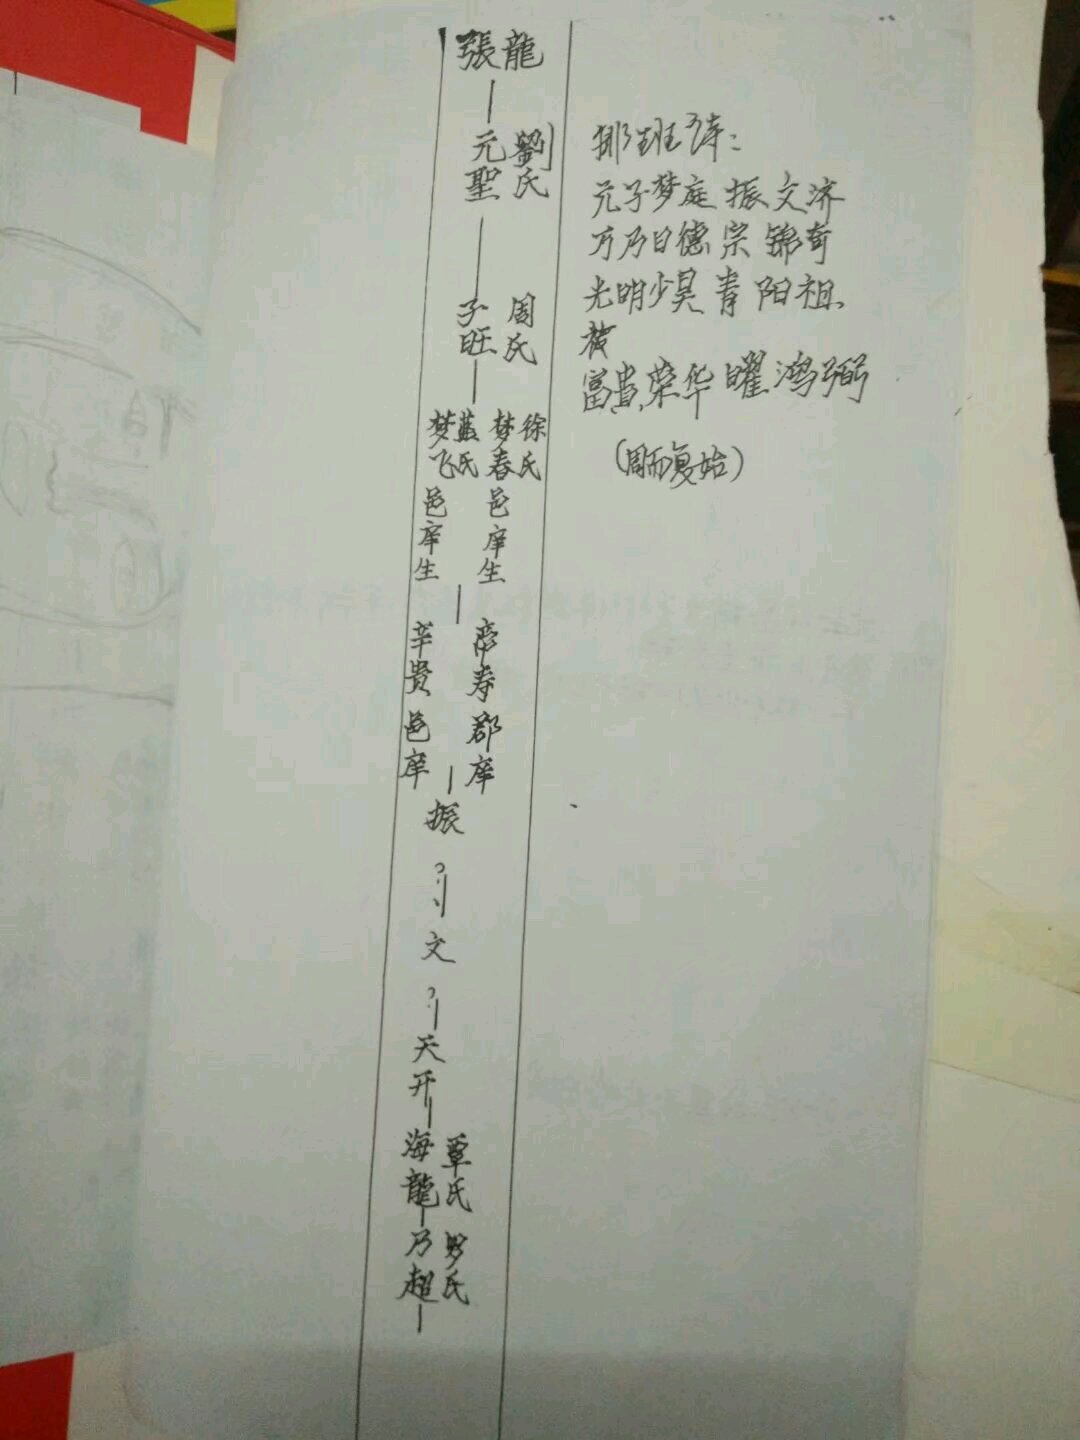 張龍
元聖 劉氏
子旺 周氏
梦飞 蓝氏 梦春 徐氏
邑庠生 邑庠生
辛贵 寿
邑庠 郡庠
振
文
天开
海龍 覃氏
乃超 罗氏
排班诗：
元子梦庭振文济
万乃日德宗锦奇
光明少昊青阳祖
富贵荣华曜鸿弼
（周而复始）